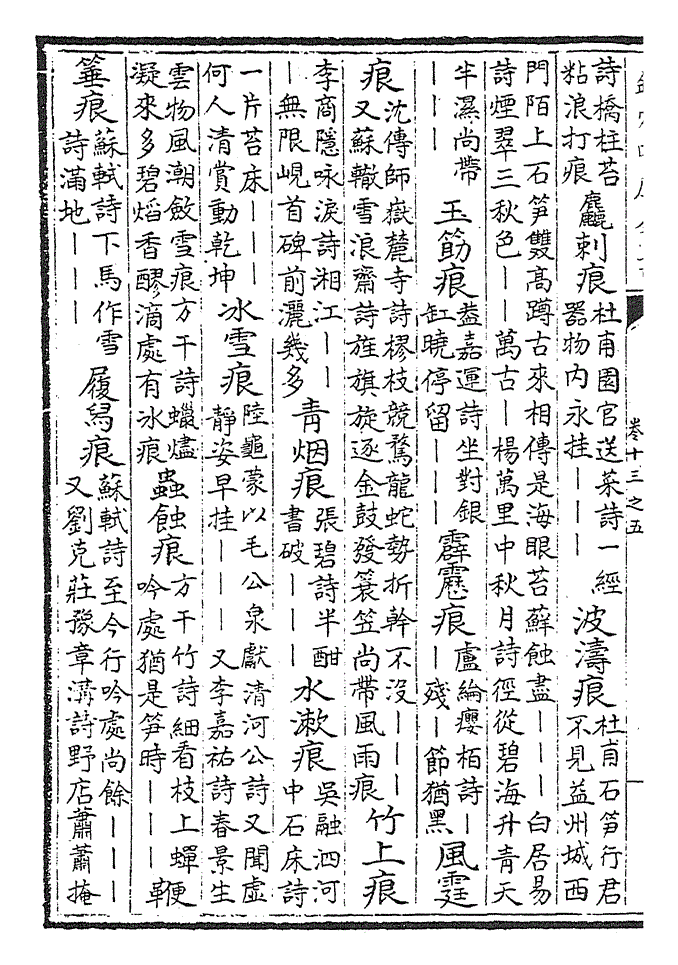 詩橋柱苔
粘浪打痕
麤刺痕
杜甫園官送菜詩一經
器物內永挂———
波濤痕
杜甫石笋行君
不見益州城西
門陌上石笋雙高蹲古來相傳是海眼苔蘚蝕盡———白居易
詩煙翠三秋色——萬古—楊萬里中秋月詩徑從碧海升青天
半濕尚帶
———
玉筯痕
葢嘉運詩坐對銀
缸曉停留———
霹靂痕
盧綸癭栢詩—
—殘—節猶黑
風霆
痕
沈傳師嶽麓寺詩樛枝競騖龍蛇勢折幹不没———
又蘇轍雪浪齋詩旌旗旋逐金鼓發簑笠尚帶風雨痕
竹上痕
李商隱咏淚詩湘江——
—無限峴首碑前灑幾多
青烟痕
張碧詩半酣
書破———
水漱痕
吳融泗河
中石床詩
一片苔床———
何人清賞動乾坤
冰雪痕
陸龜蒙以毛公泉獻清河公詩又聞虛
靜姿早挂———又李嘉祐詩春景生
雲物風潮斂雪痕方干詩蠟燼
凝來多碧熖香醪滴處有冰痕
蟲蝕痕
方干竹詩細看枝上蟬
吟處猶是笋時———
鞭
箠痕
蘇軾詩下馬作雪
詩滿地———
履舄痕
蘇軾詩至今行吟處尚餘———
又劉克莊豫章溝詩野店蕭蕭掩
卷十三之五